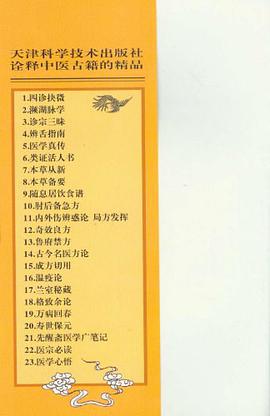 天津科学技术出版社
诠释中医古籍的精品
1.四诊抉微
2.濒湖脉学
3.诊宗三昧
4.辨舌指南
5.医学真传
6.类证活人书
7.本草从新
8.本草备要
9.随息居饮食谱
10.肘后备急方
11.内外伤辨惑论 局方发挥
12.奇效良方
13.鲁府禁方
14.古今名医方论
15.成方切用
16.温疫论
17.兰室秘藏
18.格致余论
19.万病回春
20.寿世保元
21.先醒斋医学广笔记
22.医宗必读
23.医学心悟